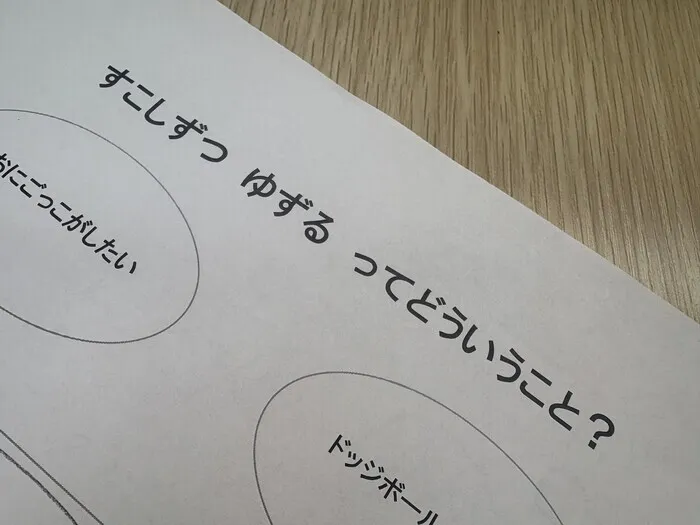 すこしずつ ゆずる ってどういうこと?
おにごっこがしたい
ドッジボール